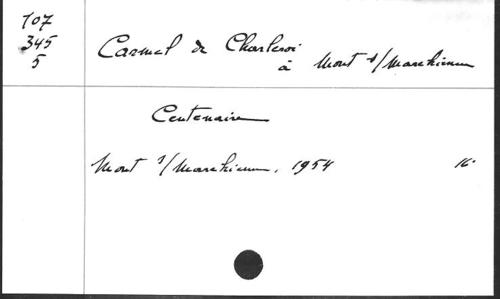 107
345
5
Carmel de Charleroi
à Mont s/Marchienne
Centenaire
Mont s/Marchienne, 1954 16°